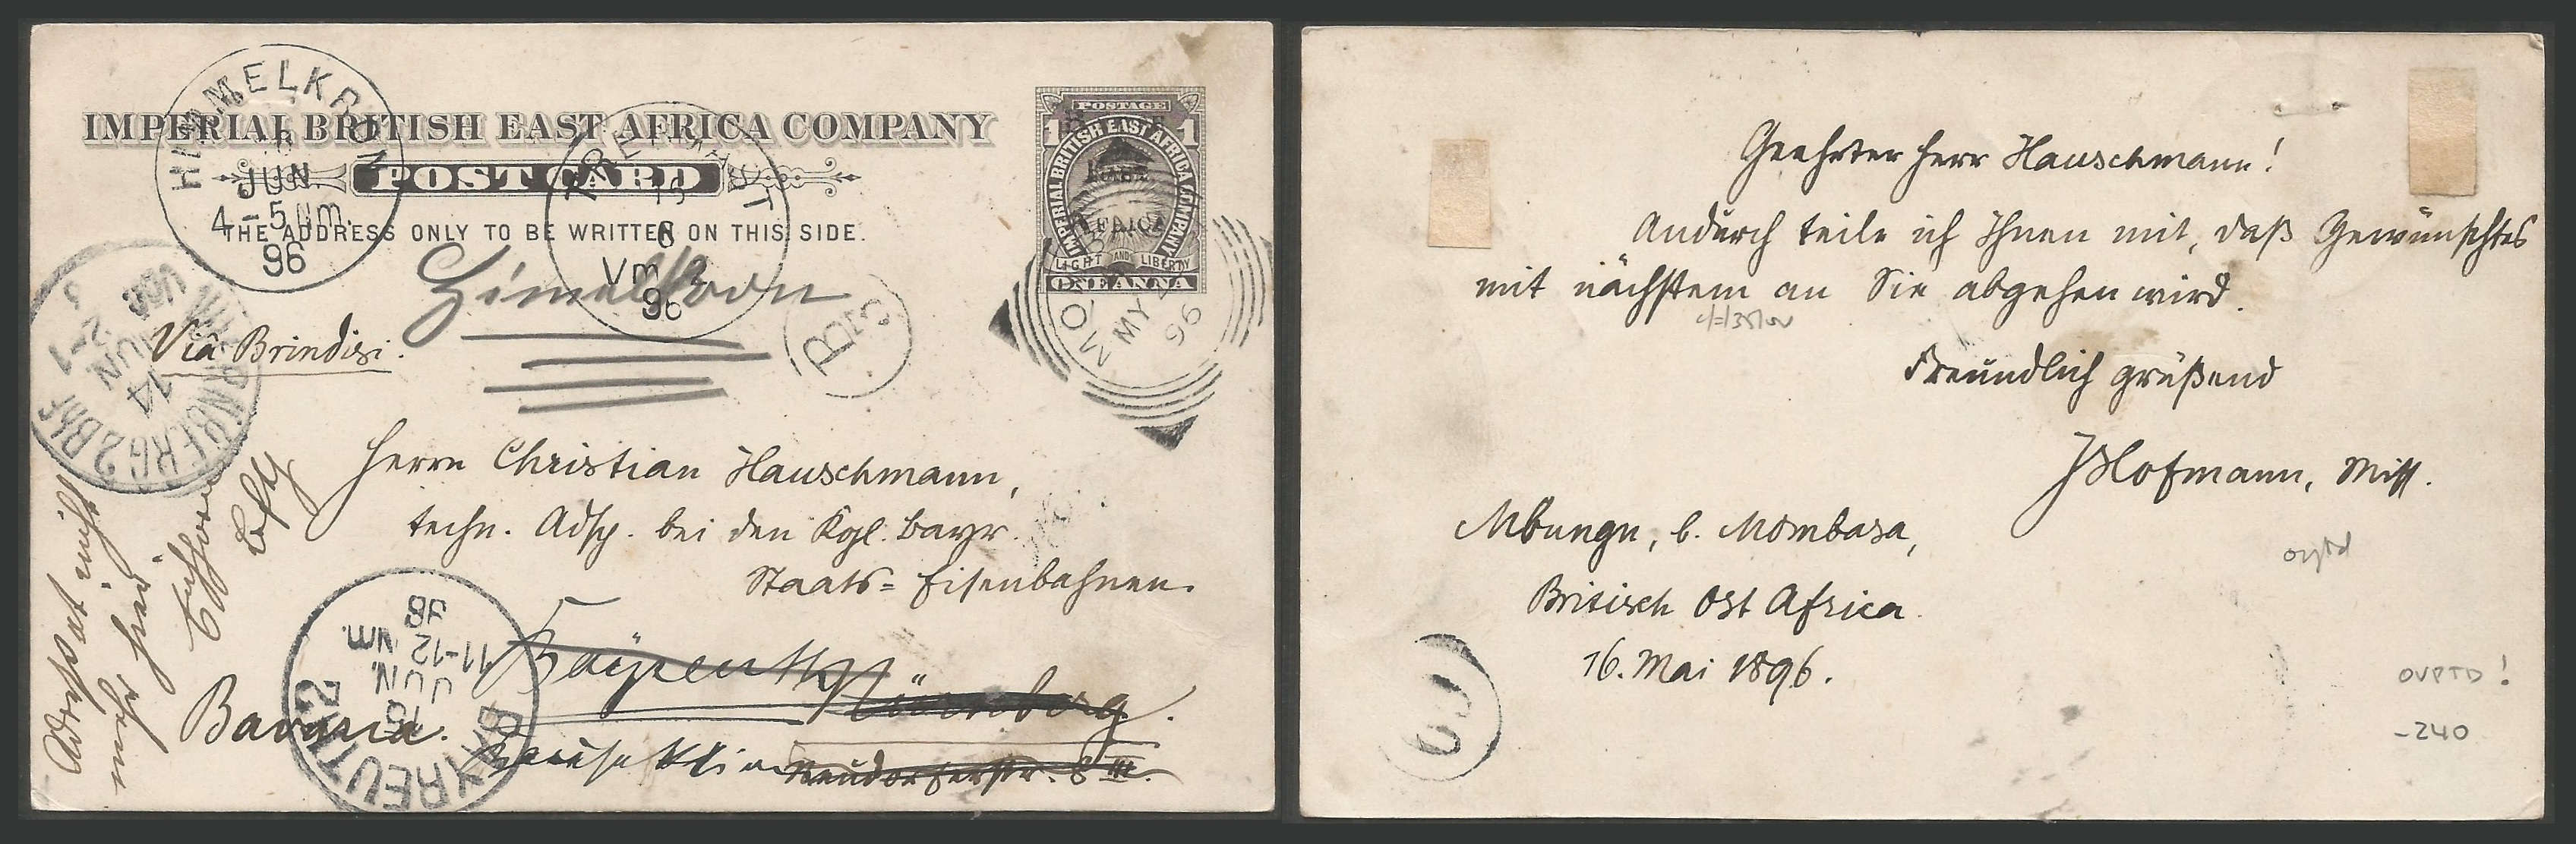 IMPERIAL BRITISH EAST AFRICA COMPANY
POST CARD
THE ADDRESS ONLY TO BE WRITTEN ON THIS SIDE.
POSTAGE
1 1
IMPERIAL BRITISH EAST AFRICA COMPANY
LIGHT AND LIBERTY
ONE ANNA
HIMMELKRON
JUN
4-5 Nm.
96
6
Vm
96
MY
96
NÜRNBERG 2 BHF
14
JUN
Viâ Brindisi.
Herrn Christian Hauschmann,
techn. Adsp. bei den Kgl. Bayr.
Staats=Eisenbahnen.
Nürnberg.
Bavaria.
Neudörferstr. 8 III.
Adressat nicht
mehr hier
BAYREUTH 2
15
JUN.
11-12 Nm.
Geehrter Herr Hauschmann!
Andurch teile ich Ihnen mit, daß Gewünschtes
mit nächstem an Sie abgehen wird.
Freundlich grüßend
Hofmann, Miss.
Mbungu, b. Mombasa,
Britisch Ost Africa.
16. Mai 1896.
ovptd
OVPTD!
-240